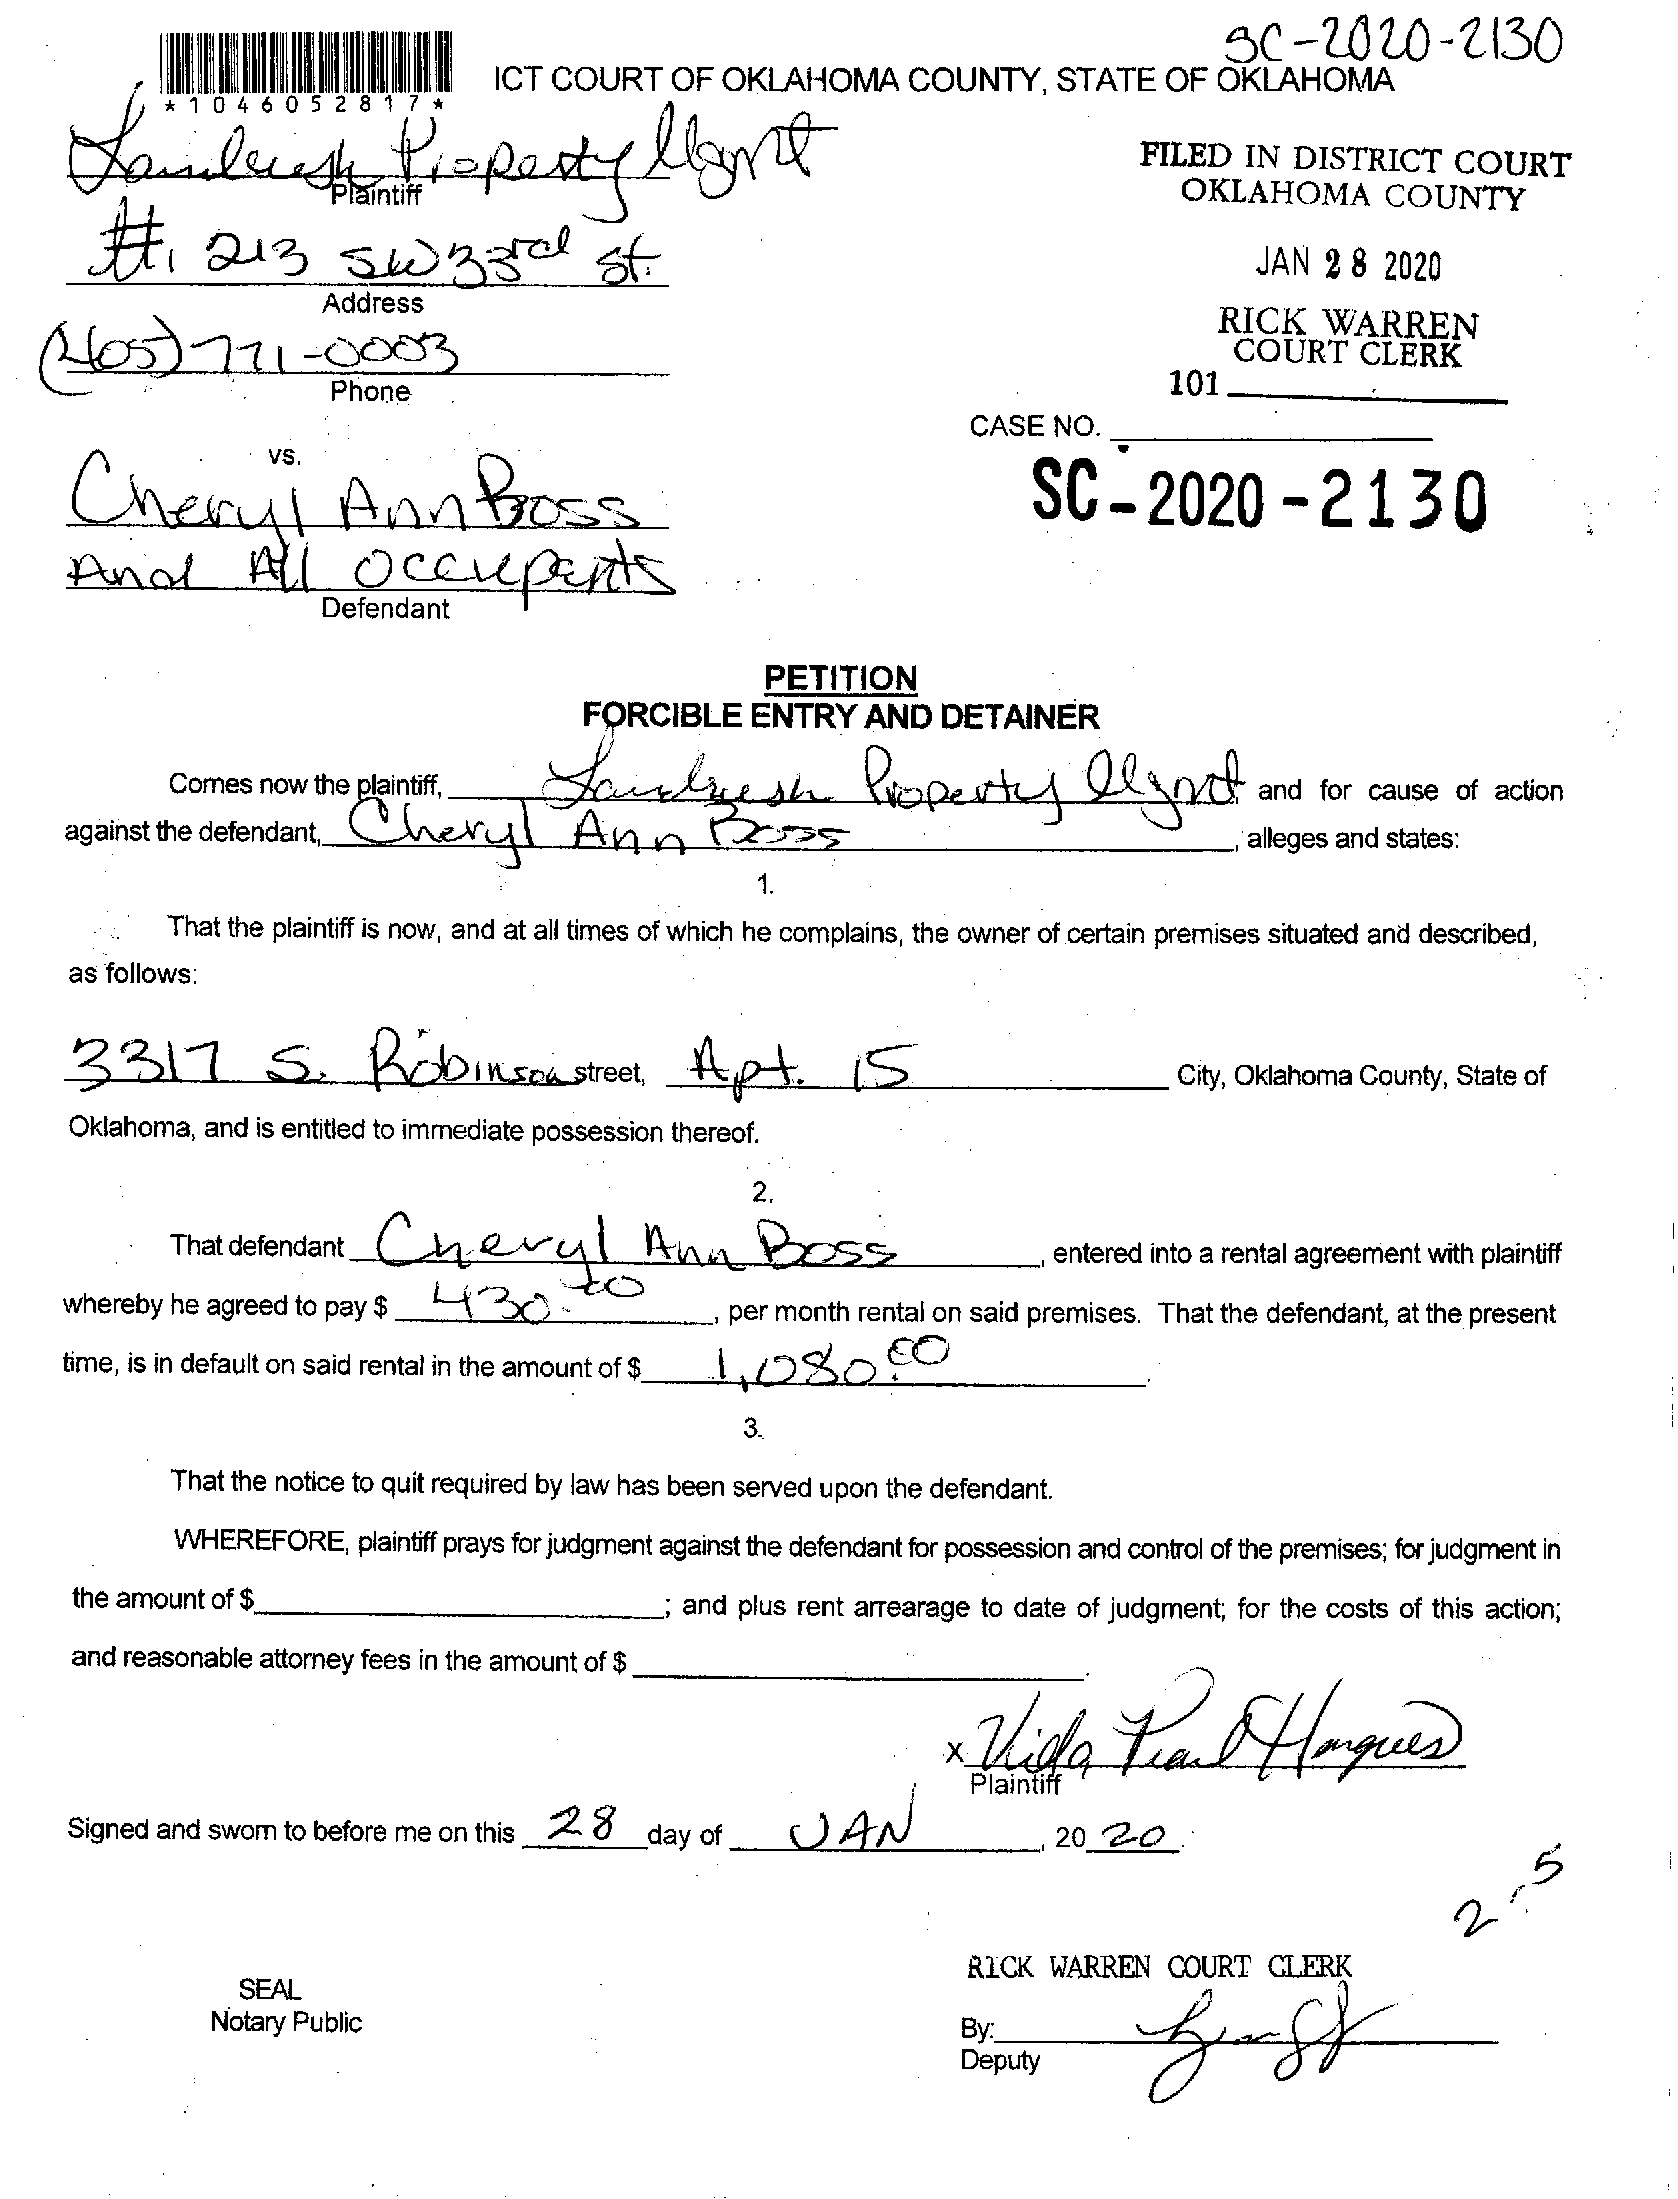 SC-2020-2130
*1046052817*
ICT COURT OF OKLAHOMA COUNTY, STATE OF OKLAHOMA
Property Mgmt
Plaintiff
FILED IN DISTRICT COURT
OKLAHOMA COUNTY
#1 213 SW 33rd St.
Address
JAN 28 2020
(405) 771-0003
Phone
RICK WARREN
COURT CLERK
101
CASE NO.
SC-2020-2130
vs.
Cheryl Ann Boss
And All Occupants
Defendant
PETITION
FORCIBLE ENTRY AND DETAINER
Comes now the plaintiff, Property Mgmt and for cause of action
against the defendant, Cheryl Ann Boss, alleges and states:
1.
That the plaintiff is now, and at all times of which he complains, the owner of certain premises situated and described,
as follows:
3317 S. Robinson street, Apt. 15 City, Oklahoma County, State of
Oklahoma, and is entitled to immediate possession thereof.
2.
That defendant Cheryl Ann Boss, entered into a rental agreement with plaintiff
whereby he agreed to pay $ 430.00, per month rental on said premises. That the defendant, at the present
time, is in default on said rental in the amount of $ 1,080.00.
3.
That the notice to quit required by law has been served upon the defendant.
WHEREFORE, plaintiff prays for judgment against the defendant for possession and control of the premises; for judgment in
the amount of $; and plus rent arrearage to date of judgment; for the costs of this action;
and reasonable attorney fees in the amount of $.
x Vida Pearl
Plaintiff
Signed and sworn to before me on this 28 day of JAN, 20 20.
2.5
RICK WARREN COURT CLERK
SEAL
Notary Public
By:
Deputy